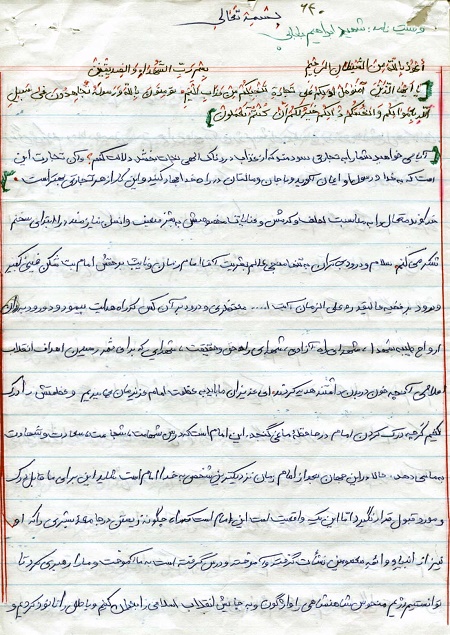 ۶۴۰
بسمه تعالی
وصیت نامه: شهید ابراهیم
اعوذ بالله من الشیطان الرجیم
یا ایها الذین آمنوا هل ادلکم علی تجارة تنجیکم من عذاب الیم تومنون بالله و رسوله و تجاهدون فی سبیل
الله باموالکم و انفسکم ذالکم خیر لکم ان کنتم تعلمون
آیا می خواهید شما را به تجارتی سودمند که از عذاب دردناک الهی نجات بخشد دلالت کنم؟ و آن تجارت این
است که به خدا و رسول او ایمان آورید و با جان و مالتان در راه خدا جهاد کنید و این کار از هر تجارتی بهتر است.
خداوند متعال را به مناسبت لطف و کرمش و عنایت مخصوصش به بشر ضعیف و انسان نیازمند در ابتدای سخنم
تشکر می کنم. سلام و درود بی کران به منجی عالم بشریت آقا امام زمان و نایب برحقش امام بت شکن خمینی کبیر
و درود بر آن کس که راه هدایت پیمود و درود به روان
ارواح طیبه شهدا، شهدای راه آزادی شهدای راه حق و حقیقت، شهدایی که برای به ثمر رسیدن اهداف انقلاب
اسلامی آنچه خون در بدن داشتند هدیه کردند. ای عزیزان ما باید به عظمت امام عزیزمان پی ببریم و عظمتش را درک
کنیم گرچه درک کردن امام در حافظه ما نمی گنجد. این امام است که درس شهامت، شجاعت، سعادت و شهادت
به ما می دهد. حالا در این جهان بعد از امام زمان نزدیکترین شخص به خدا امام است شاید این برای ما قابل درک
و مورد قبول قرار نگیرد اما این یک واقعیت است این امام است که چگونه زیستن در جامعه بشری را که او
نیز از انبیاء و ائمه معصومین نشأت گرفته و آموخته و درس گرفته است به ما آموخت و ما را رهبری کرد تا
توانستیم رژیم منحوس شاهنشاهی را واژگون و به جایش انقلاب اسلامی را جایگزین کنیم و باطل را نابود کردیم و